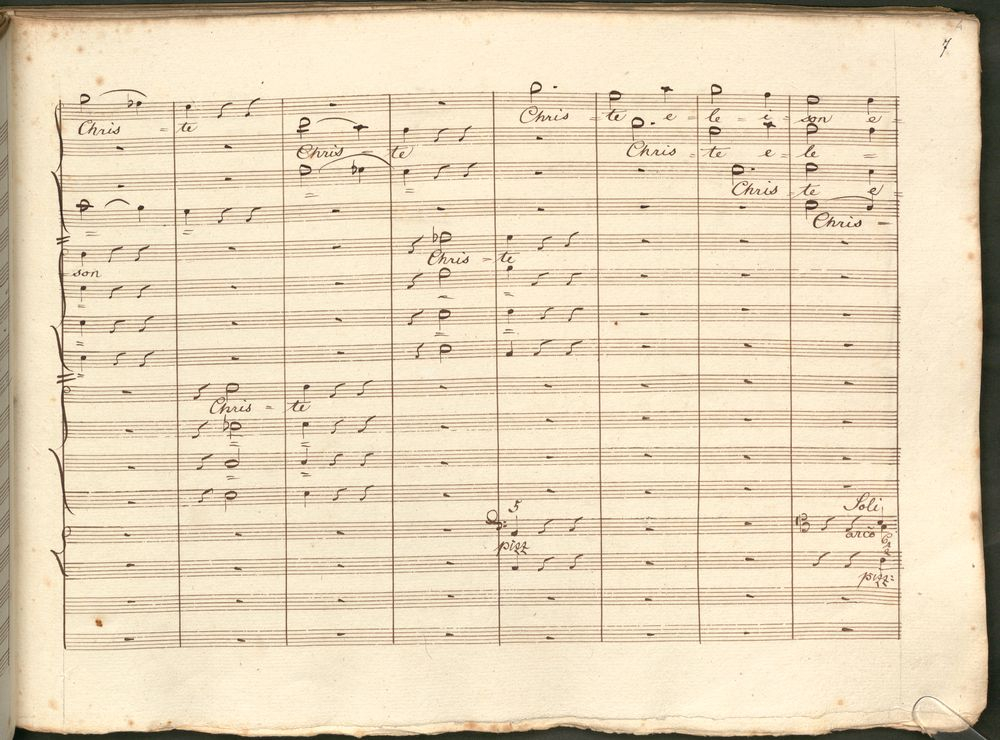 7
Chris - te e - le - i - son e -
Chris = te
Chris = te Chris - te e - le =
Chris - te e -
Chris -
Chris = te
= son
Chris = te
5 Soli
pizz arco
pizz: